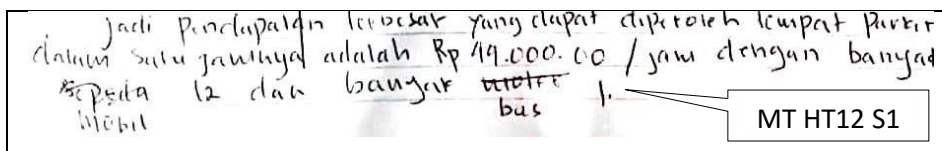 Jadi pendapatan terbesar yang dapat diperoleh tempat parkir
dalam satu jamnya adalah Rp 49.000.00 / jam dengan banyak
sepeda 12 dan banyak motor 1.
mobil bus
MT HT12 S1